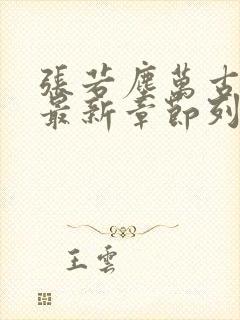 張若塵萬古
最新章節列
王雲